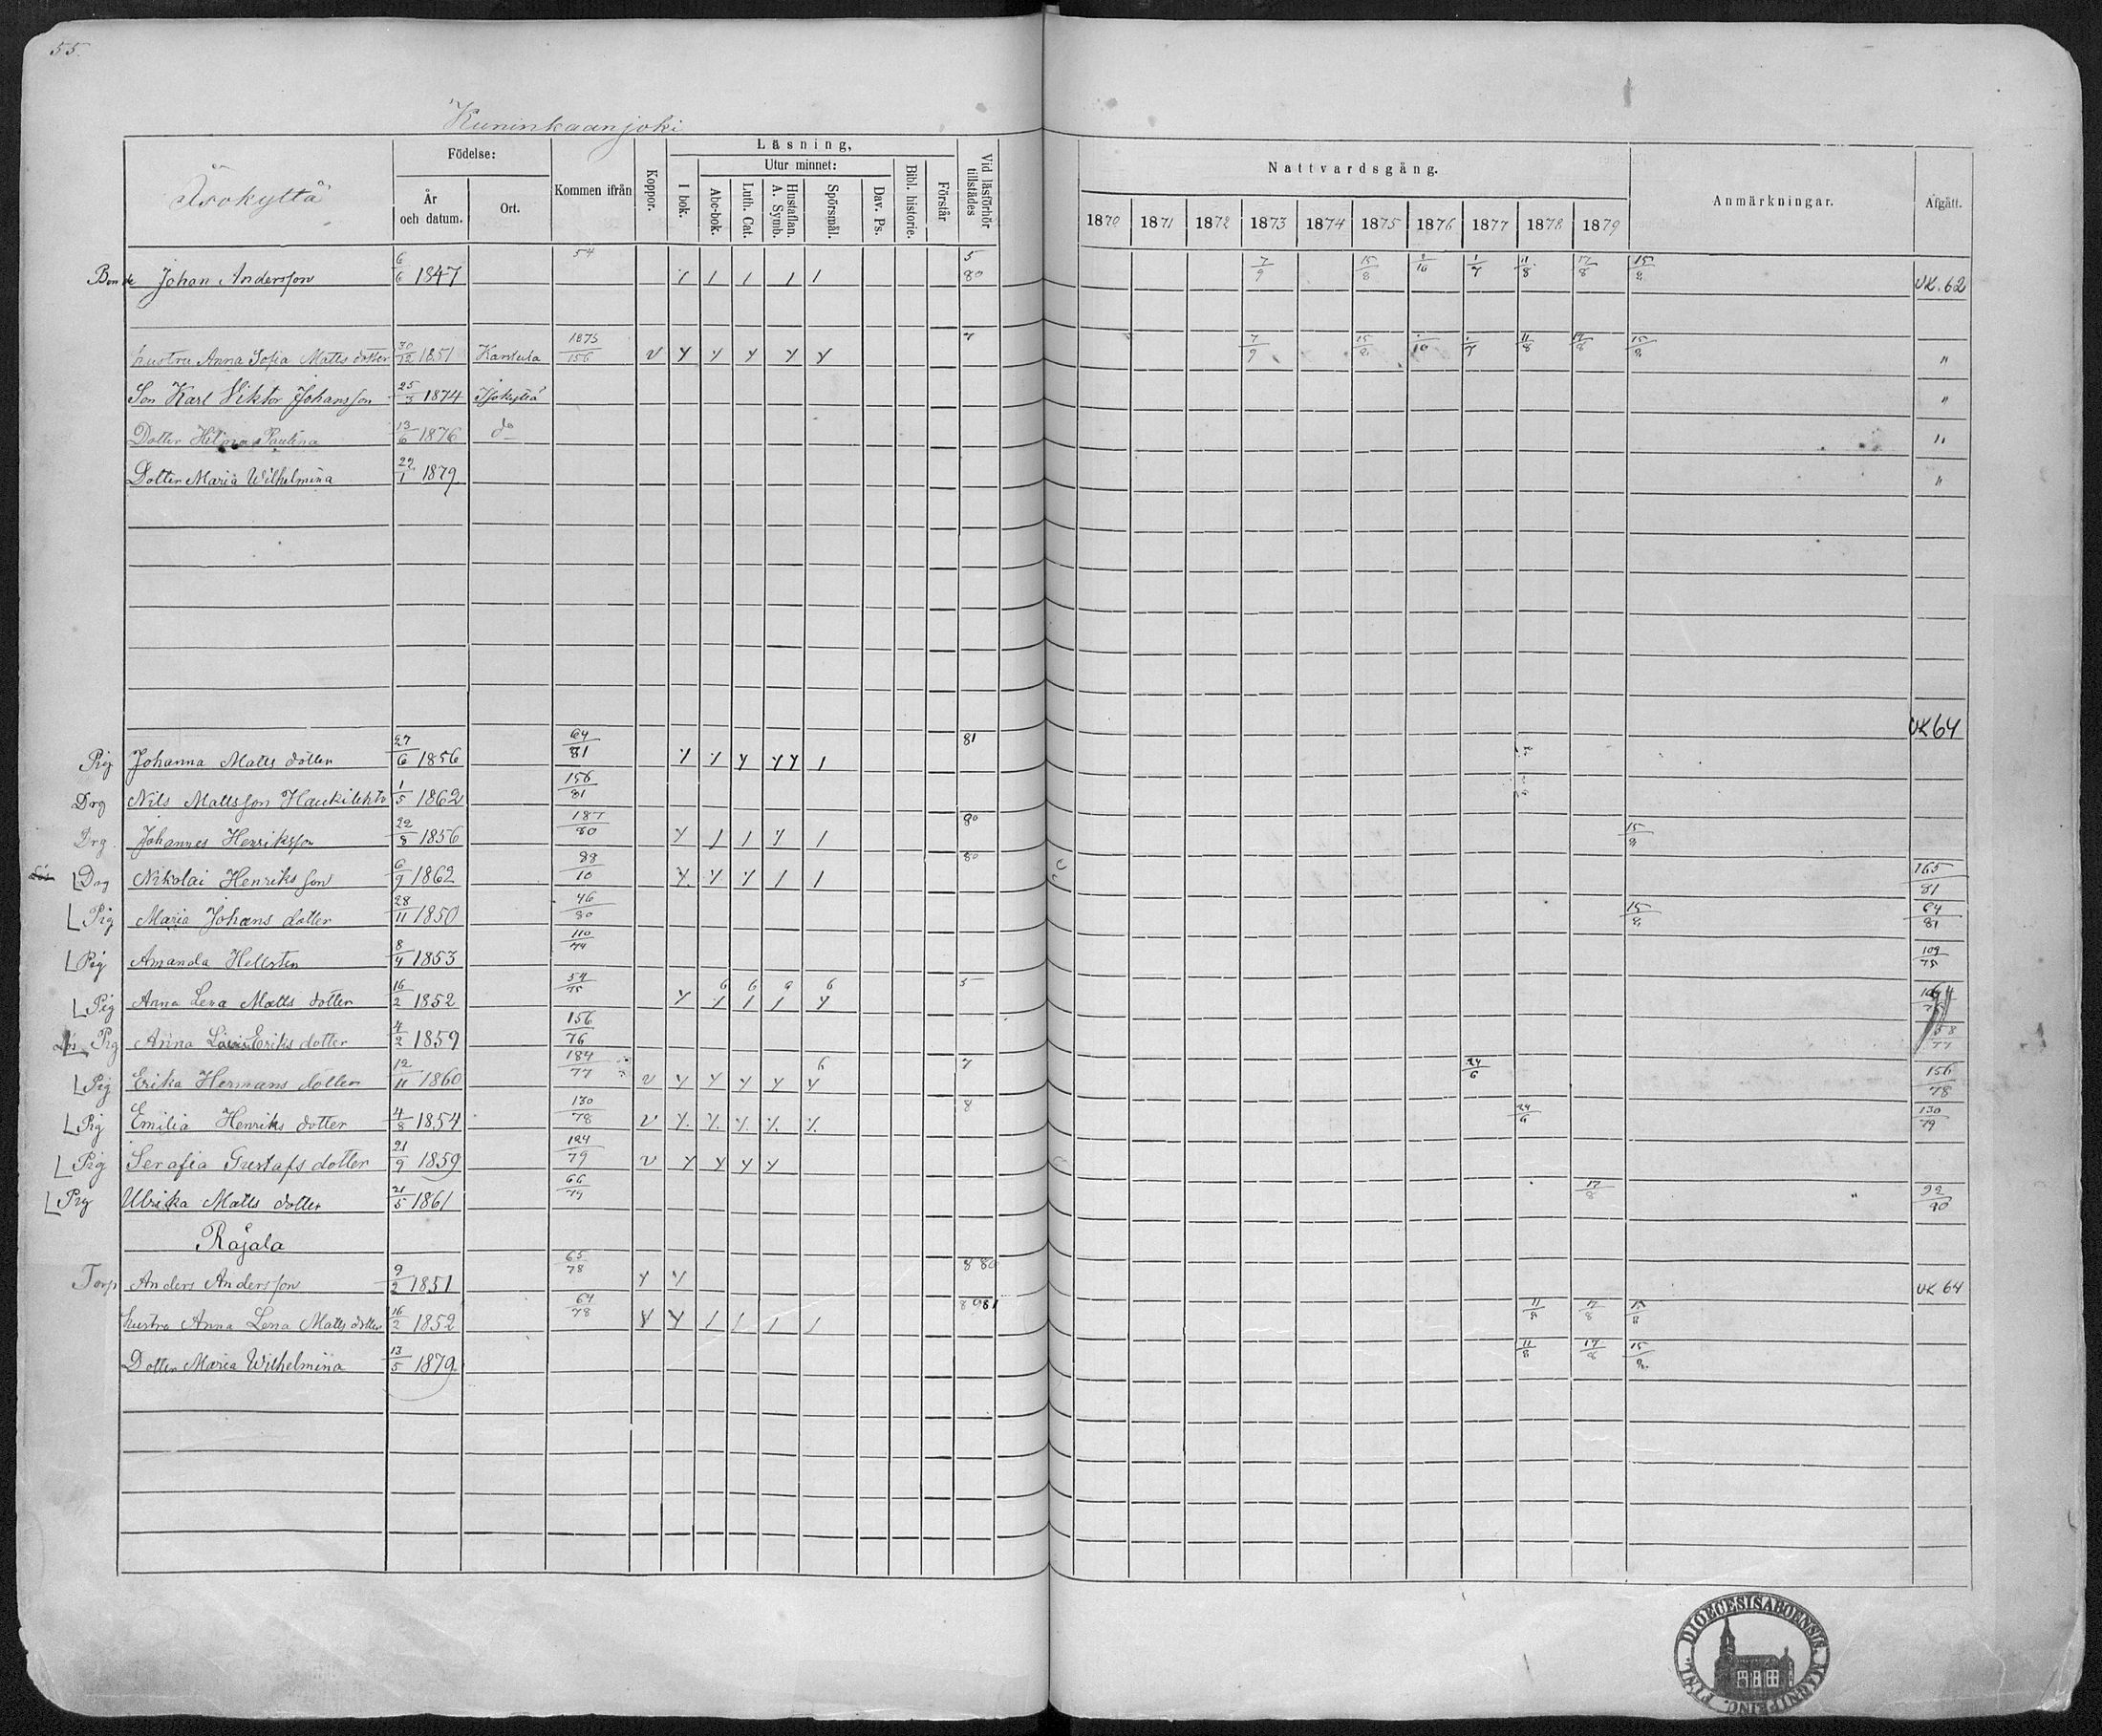 55.
Kuninkaanjoki
Isokyltä
Födelse:
År och datum.
Ort.
Kommen ifrån
Koppor.
Läsning,
I bok.
Utur minnet:
Abc-bok.
Luth. Cat.
Hustaflan. A. Symb.
Spörsmål.
Dav. Ps.
Bibl. historie.
Förstår
Vid läsförhör tillstädes
Nattvardsgång.
1870 1871 1872 1873 1874 1875 1876 1877 1878 1879
Anmärkningar.
Afgått.
Bonde Johan Andersson 6/6 1847 54 5 80 7/9 15/8 1/7 11/8 17/8 15/8 UK. 62
hustru Anna Sofia Matts dotter 30/12 1851 Kantela 1873/156 v 7 7/9 15/8 11/8 17/8 15/8 "
Son Karl Viktor Johansson 25/3 1874 Isokyltä "
Dotter Hilma Paulina 13/6 1876 do "
Dotter Maria Wilhelmina 22/1 1879 "
UK 64
Pig Johanna Matts dotter 27/6 1856 64/81 81
Drg Nils Mattsson Haukilehto 1/5 1862 156/81
Drg. Johannes Henriksson 22/8 1856 187/80 80 15/8
Drg Nikolai Henriksson 6/9 1862 88/10 80 165/81
Pig Maria Johans dotter 28/11 1850 46/80 15/8 64/81
Pig Amanda Hellsten 8/4 1853 110/74 109/75
Pig Anna Lena Matts dotter 16/2 1852 54/75 6 6 6 5
Pig Anna Eriks dotter 4/2 1859 156/76 58/77
Pig Erika Hermans dotter 12/11 1860 184/77 v 6 7 24/6 156/78
Pig Emilia Henriks dotter 4/8 1854 130/78 v 8 24/6 130/79
Pig Serafia Gustafs dotter 21/9 1859 124/79 v
Pig Ulrika Matts dotter 21/5 1861 66/79 17/8 92/80
Rajala
Torp Anders Andersson 9/2 1851 65/78 8 80 UK 64
hustru Anna Lena Matts dotter 16/2 1852 64/78 11/8 17/8 15/8
Dotter Maria Wilhelmina 13/5 1879 11/8 17/8 15/8
DIOECESIS ABOENSIS